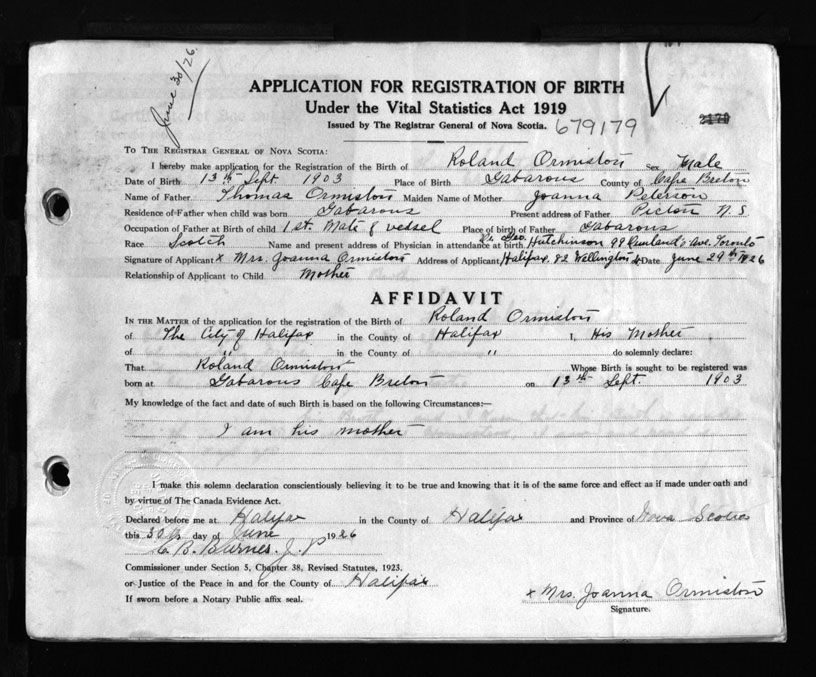 June 30/26.
APPLICATION FOR REGISTRATION OF BIRTH
Under the Vital Statistics Act 1919
Issued by The Registrar General of Nova Scotia. 679179
TO THE REGISTRAR GENERAL OF NOVA SCOTIA:
I hereby make application for the Registration of the Birth of Roland Ormiston Sex Male
Date of Birth 13th Sept. 1903 Place of Birth Gabarous County of Cape Breton
Name of Father Thomas Ormiston Maiden Name of Mother Joanna Peterson
Residence of Father when child was born Gabarous Present address of Father Pictou N. S
Occupation of Father at Birth of child 1st. Mate of vessel Place of birth of Father Gabarous
Race Scotch Name and present address of Physician in attendance at birth Dr. Geo. Hutchinson 99 Ave. Toronto
Signature of Applicant x Mrs. Joanna Ormiston Address of Applicant Halifax. 82 Wellington St Date June 29th 1926
Relationship of Applicant to Child Mother
AFFIDAVIT
IN THE MATTER of the application for the registration of the Birth of Roland Ormiston
of The City of Halifax in the County of Halifax I, His Mother
of " in the County of " do solemnly declare:
That Roland Ormiston Whose Birth is sought to be registered was
born at Gabarous Cape Breton on 13th Sept. 1903
My knowledge of the fact and date of such Birth is based on the following Circumstances:—
I am his mother
I make this solemn declaration conscientiously believing it to be true and knowing that it is of the same force and effect as if made under oath and
by virtue of The Canada Evidence Act.
Declared before me at Halifax in the County of Halifax and Province of Nova Scotia
this 30th day of June 1926
C. B. Barnes. J. P
Commissioner under Section 5, Chapter 38, Revised Statutes, 1923.
or Justice of the Peace in and for the County of Halifax
If sworn before a Notary Public affix seal.
x Mrs. Joanna Ormiston
Signature.